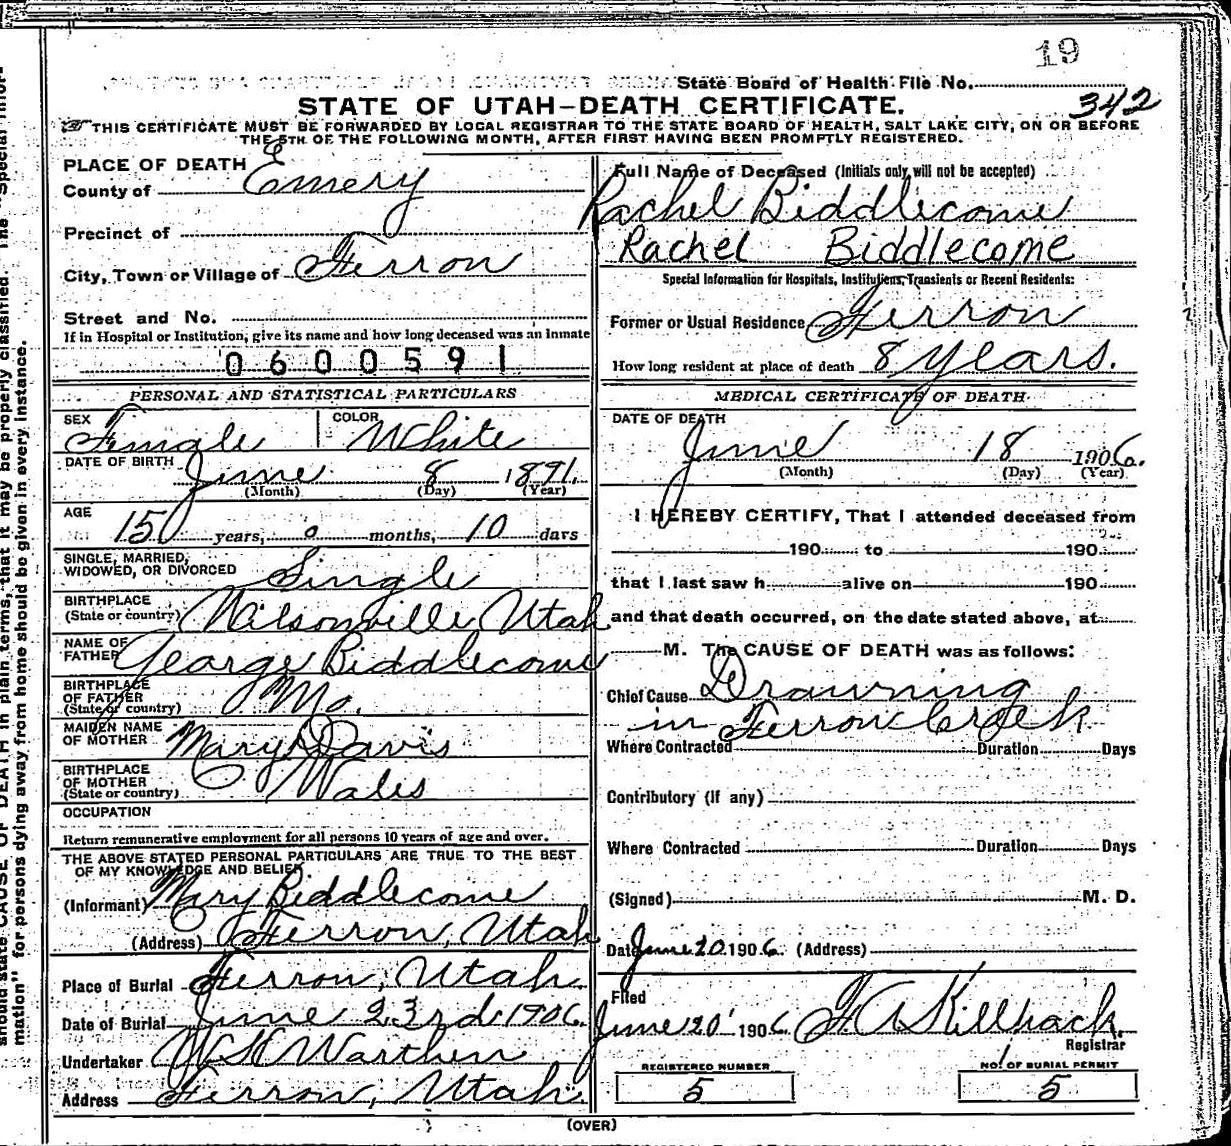 19
State Board of Health File No. 342
STATE OF UTAH—DEATH CERTIFICATE.
THIS CERTIFICATE MUST BE FORWARDED BY LOCAL REGISTRAR TO THE STATE BOARD OF HEALTH, SALT LAKE CITY, ON OR BEFORE
THE 5TH OF THE FOLLOWING MONTH, AFTER FIRST HAVING BEEN PROMPTLY REGISTERED.
PLACE OF DEATH
County of Emery
Precinct of
City, Town or Village of Ferron
Street and No.
If in Hospital or Institution, give its name and how long deceased was an Inmate
0600591
PERSONAL AND STATISTICAL PARTICULARS
SEX Female COLOR White
DATE OF BIRTH June 8 1891
(Month) (Day) (Year)
AGE
15 years, 0 months, 10 days
SINGLE, MARRIED,
WIDOWED, OR DIVORCED Single
BIRTHPLACE
(State or country) Wilsonville Utah
NAME OF
FATHER George Biddlecome
BIRTHPLACE
OF FATHER
(State or country) Mo.
MAIDEN NAME
OF MOTHER Mary Davis
BIRTHPLACE
OF MOTHER
(State or country) Wales
OCCUPATION
Return remunerative employment for all persons 10 years of age and over.
THE ABOVE STATED PERSONAL PARTICULARS ARE TRUE TO THE BEST
OF MY KNOWLEDGE AND BELIEF
(Informant) Mary Biddlecome
(Address) Ferron, Utah
Place of Burial Ferron, Utah.
Date of Burial June 23rd 1906.
Undertaker Warthen
Address Ferron, Utah.
Full Name of Deceased (Initials only will not be accepted)
Rachel Biddlecome
Rachel Biddlecome
Special Information for Hospitals, Institutions, Transients or Recent Residents:
Former or Usual Residence Ferron
How long resident at place of death 8 years.
MEDICAL CERTIFICATE OF DEATH
DATE OF DEATH
June 18 1906.
(Month) (Day) (Year)
I HEREBY CERTIFY, That I attended deceased from
190 to 190
that I last saw h alive on 190
and that death occurred, on the date stated above, at
M. The CAUSE OF DEATH was as follows:
Chief Cause Drawning
in Ferron Creek
Where Contracted Duration Days
Contributory (if any)
Where Contracted Duration Days
(Signed) M. D.
Date June 20 1906. (Address)
Filed
June 20 1906 Killpack
Registrar
REGISTERED NUMBER
5
NO. OF BURIAL PERMIT
5
(OVER)
should state CAUSE OF DEATH in plain terms, that it may be properly classified. The "Special Infor-
mation" for persons dying away from home should be given in every instance.